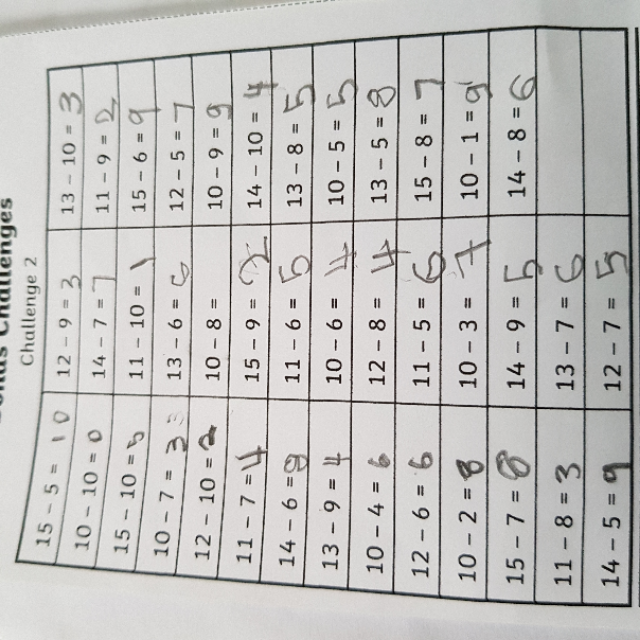 Challenges
Challenge 2
15 - 5 = 10 12 - 9 = 3 13 - 10 = 3
10 - 10 = 0 14 - 7 = 7 11 - 9 = 2
15 - 10 = 5 11 - 10 = 1 15 - 6 = 9
10 - 7 = 3 13 - 6 = 6 12 - 5 = 7
12 - 10 = 2 10 - 8 = 10 - 9 = 9
11 - 7 = 4 15 - 9 = 14 - 10 = 4
14 - 6 = 9 11 - 6 = 5 13 - 8 = 5
13 - 9 = 4 10 - 6 = 4 10 - 5 = 5
10 - 4 = 6 12 - 8 = 4 13 - 5 = 8
12 - 6 = 6 11 - 5 = 6 15 - 8 = 7
10 - 2 = 8 10 - 3 = 7 10 - 1 = 9
15 - 7 = 8 14 - 9 = 5 14 - 8 = 6
11 - 8 = 3 13 - 7 = 6
14 - 5 = 9 12 - 7 = 5